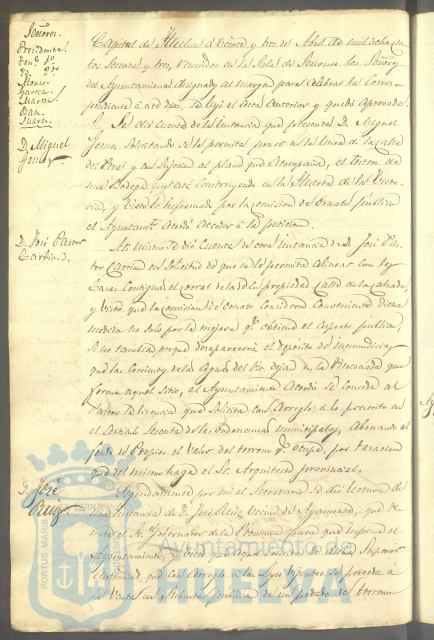 Señores
Presidente
Tene. 1º
Yd. 2º
Alonso
Garcia
Duarte
Suarez
D. Miguel
Gomez
D. José Pastor
D. José
Ruiz
Capital de Huelva á Veinte y tres de Abril de mil ochocientos
Sesenta y tres, reunidos en la Sala de Sesiones los Señores
del Ayuntamiento designados al margen para celebrar la Corres-
pondiente á este dia, se leyó el acta anterior y quedó aprobada.
Se dió cuenta de la instancia que presenta D. Miguel
Gomez solicitando se le permita poner en la linea de la calle
del Peral y con sujecion al plano que acompaña, el
una Bodega que está construyendo en la Huerta de la
y visto lo informado por la comision de Ornato publico
el Ayuntamto. Acordó acceder á la peticion.
Asi mismo se dió cuenta de otra instancia de D. José Pas-
tor en solicitud de que se le permita alinear con las
Casas Contiguas el corral de la de su propiedad Calle de la Calzada,
y Visto que la comision de Ornato considera conveniente dicha
medida no solo por la mejora qe. obtiene el aspecto publico,
si no tambien porque desaparecerá el deposito de inmundicias
que las corrientes de las aguas del dejan en la rinconada que
forma aquel sitio, el Ayuntamiento Acordó se conceda al
Pastor la licencia que solicita con arreglo á lo prescrito en
el articulo Sesenta de las ordenanzas municipales, abonando al
fondo de Propios el Valor del terreno qe. ocupe, por tasacion
que del mismo haga el Sr. Arquitecto provincial.
Seguidamente por mi el Secretario se dió lectura de
una instancia de D. José Ruiz, vecino de Ayamonte, que re-
mite el Sr. Gobernador de la Provincia para que informe el
Ayuntamiento, y
Autoridad, que con arreglo á las Leyes Vigentes se proceda á
la Venta en subasta publica de un pedazo de terreno
PORTUS MARIS
Ayuntamiento de
HUELVA